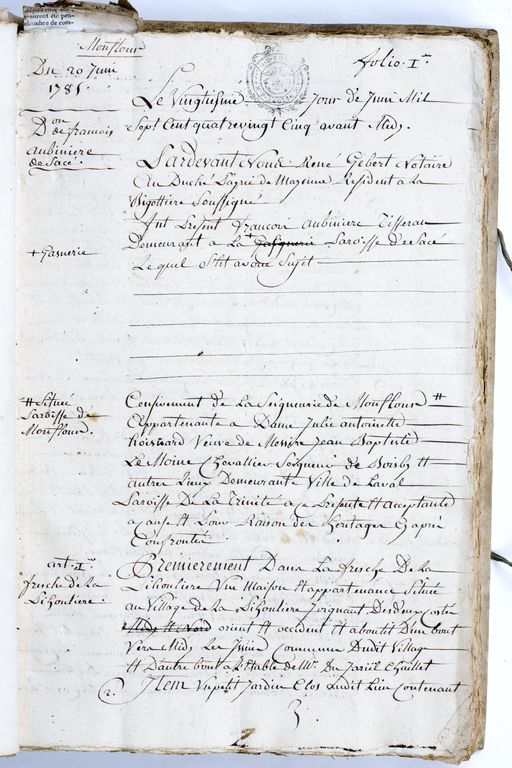 Monflour
folio. 1er
Du 20 Juin
1785.
Le Vingtiesme Jour de Juin Mil
Sept Cent quatrevingt Cinq avant Midy.
Don
de francois
aubiniere
de Sacé.
Pardevant Nous René Gebert Notaire
Au Duché Pairie de Mayenne Resident a la
Bigottiere Soussigné
Fut Present François aubiniere Tisseran
Demeurant a La + Parroisse De Sacé
+ Gasnerie
Lequel S'est avoué Sujet
Confinement de La Seigneurie de Monflour #
# Situé
Parroisse de
Monflour.
Appartenante a Dame Julie antoinette
Veuve de Messire Jean Baptiste
Le Moine Chevallier Seigneur de Boisby Et
autres Lieux Demeurante Ville de Laval
Paroisse De La Trinité a ce Presente Et acceptante
a cause Et Pour Raison des Heritages Cy apres
Confrontés
art. 1er
fresche de la
Lihouliere
Premierement Dans La fresche De La
Lihouliere Une Maison Et appartenance Située
au Village de la Lihouliere Joignant Des deux Costés
Midy Et Nord orient Et occident Et aboutté D'un bout
Vers Midy Les Issues Commune Dudit Village
Et D'autre bout a L'Etable de Mr. Du Chaillet
2. Item Un petit Jardin Clos Audit Lieu Contenant
3